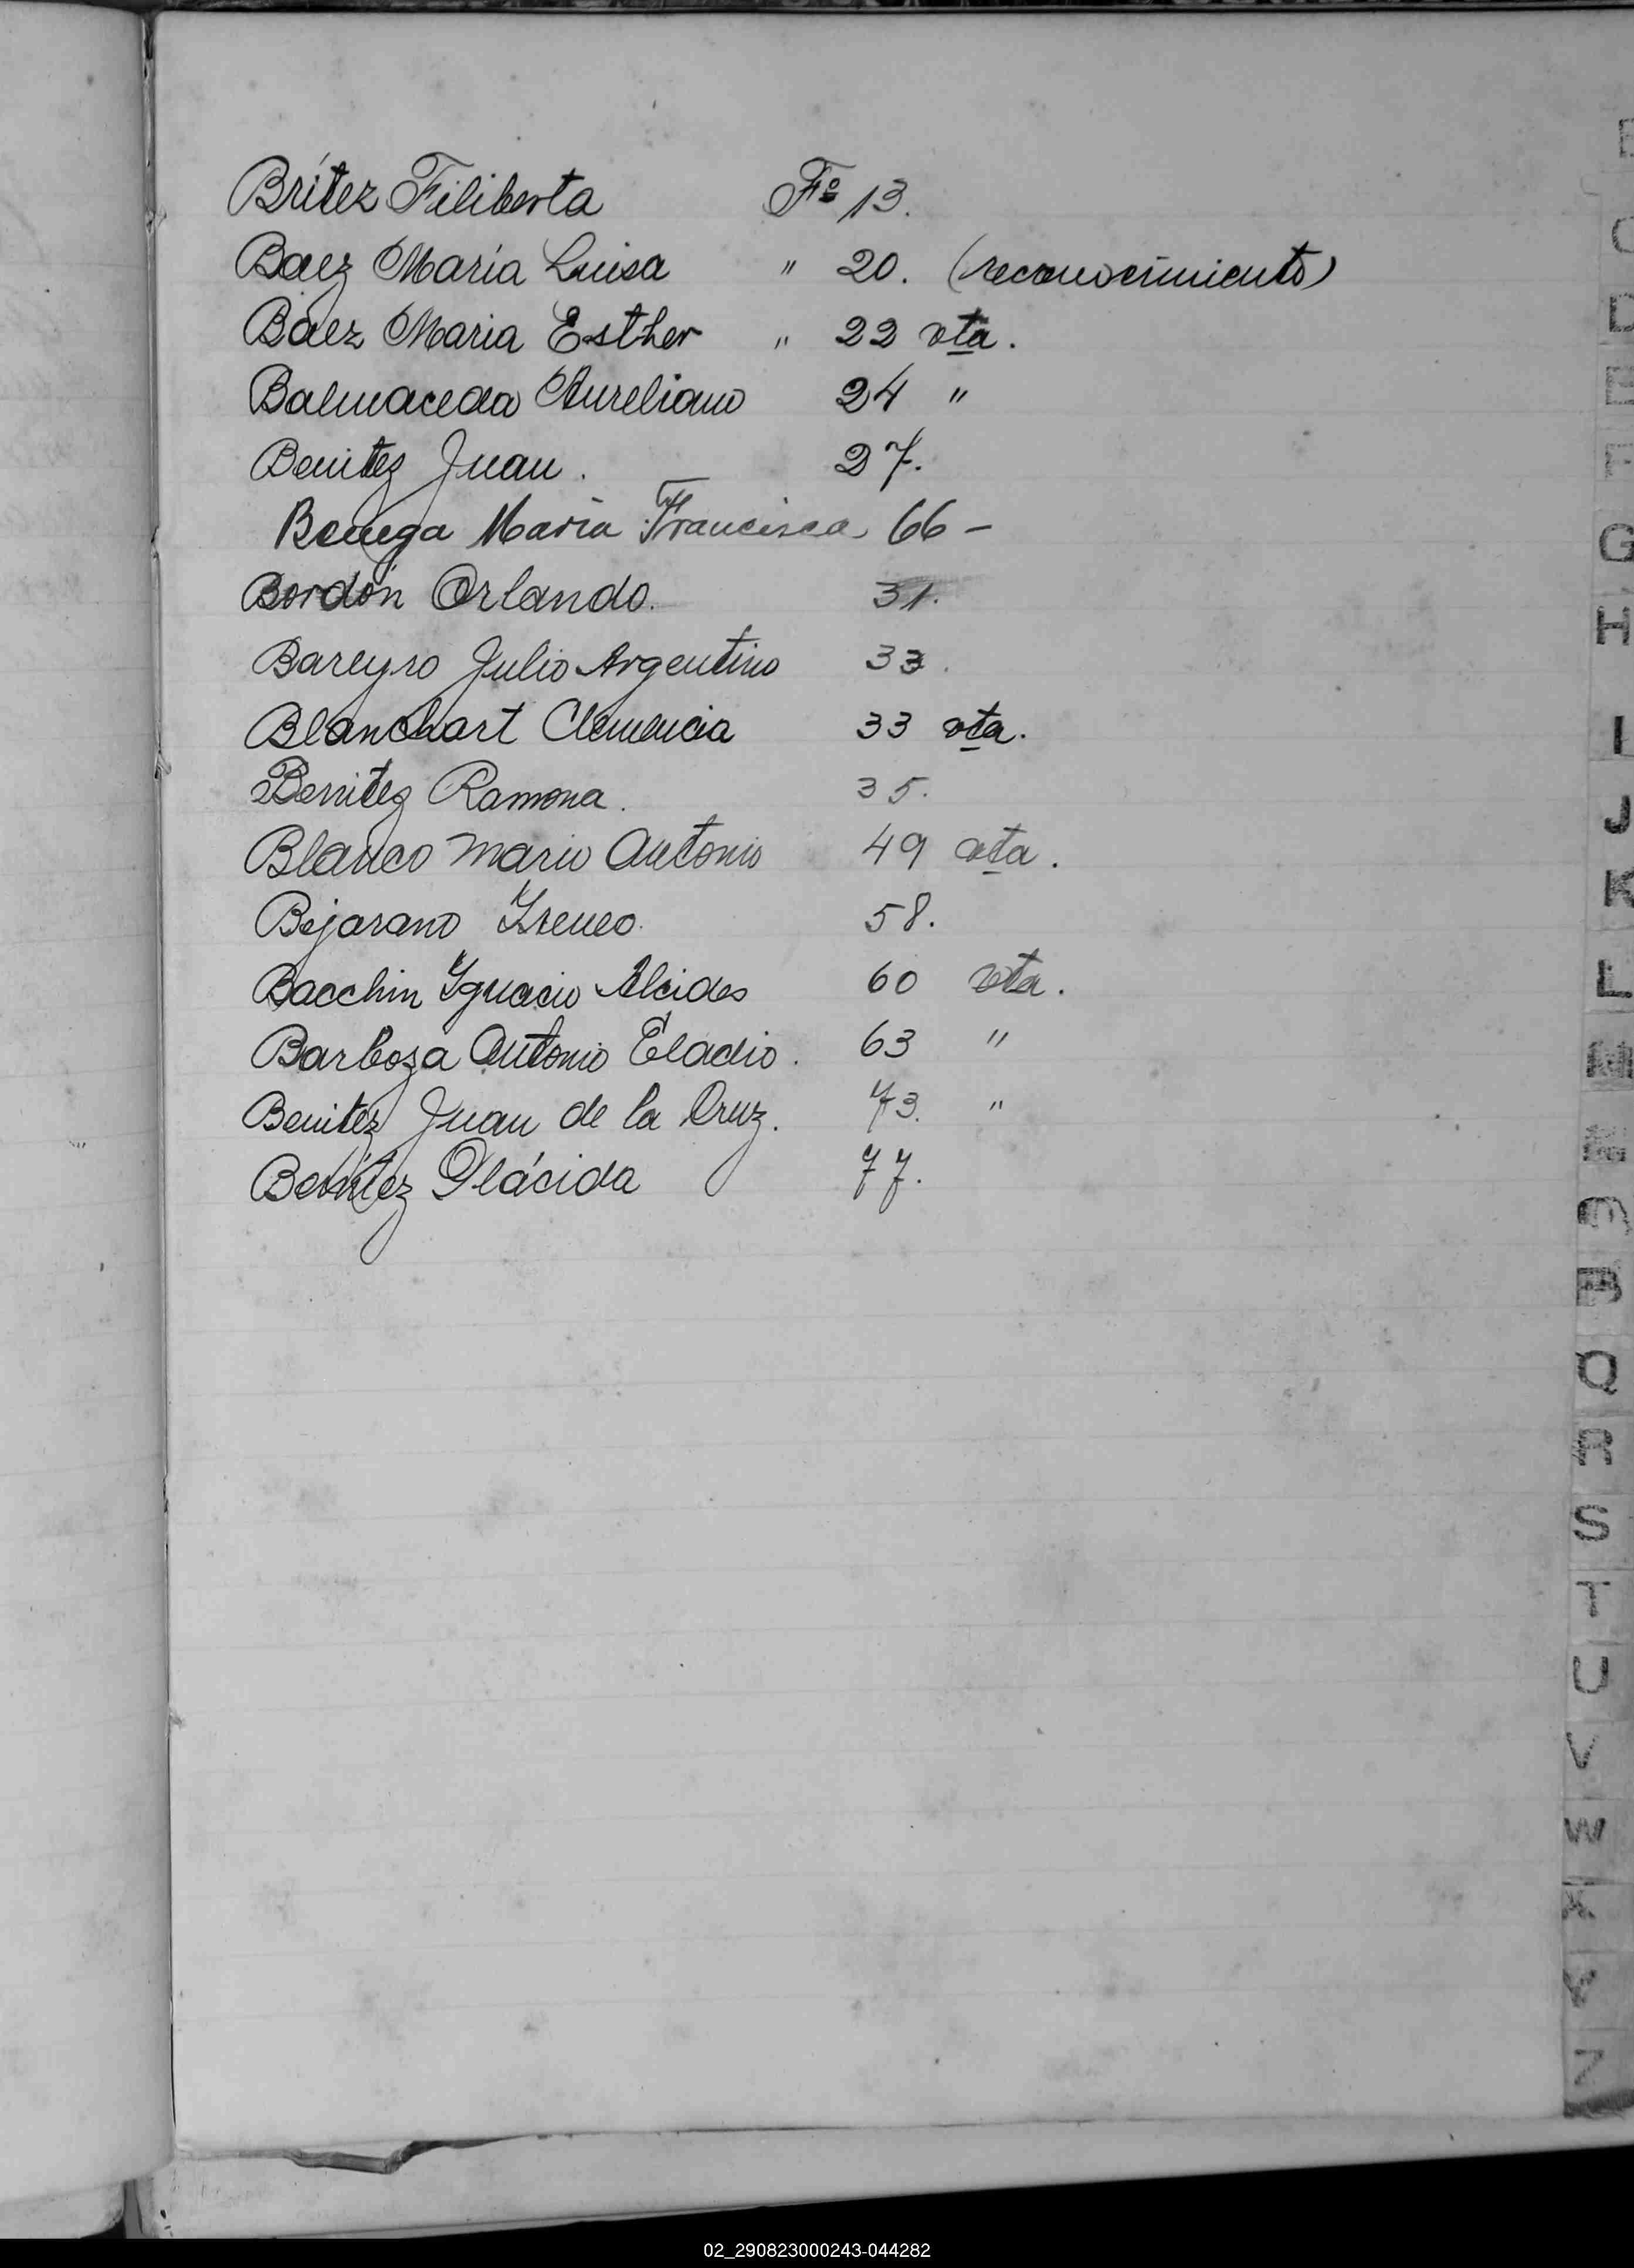 Brítez Filiberta Fº 13.
Baez María Luisa " 20. (reconocimiento)
Baez Maria Esther " 22 vta.
Balmaceda Aureliano 24 "
Benitez Juan. 27.
Benega María Francisca 66 -
Bordón Orlando. 31.
Bareyro Julio Argentino 33.
Blanchart Clemencia 33 vta.
Benitez Ramona. 35.
Blanco Mario Antonio 49 vta.
Bejarano Ireneo. 58.
Bacchin Ignacio Alcides 60 vta.
Barboza Antonio Eladio. 63 "
Benitez Juan de la Cruz. 73. "
Benítez Plácida 77.
C
D
E
F
G
H
I
J
K
L
M
N
O
P
Q
R
S
T
U
V
W
X
Y
Z
02_290823000243-044282